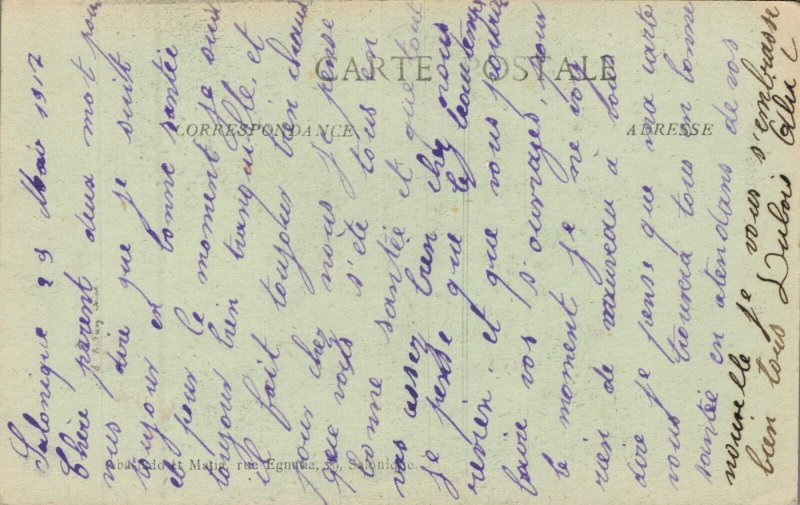 CARTE POSTALE
CORRESPONDANCE
ADRESSE
Salonique 29 Mai 1917
Chère parent deux mot pour
vous dire que je suit
toujour en bonne santée
et pour le moment je suis
toujour bien tranquille, et
il fait toujour bien chaud
pour chez nous je pense
que vous s'ète tous en
bonne santée et que tout
vas assez bien chez nous
je pense que le beau temps
revien et que vous pourra
faire vos s'ouvrages, pour
le moment je ne vois
rien de nouveau à vous
dire je pense que ma carte
vous trouvera tous en bonne
santée en atendans de vos
nouvelle je vous s'embrasse
bien tous Dubois
Abastado et Matia, rue Egnatia, Salonique